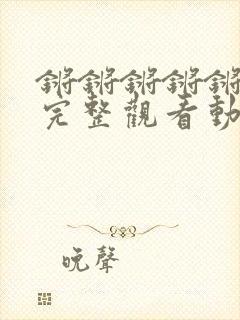 锵锵锵锵锵
完整觀看動
晚聲